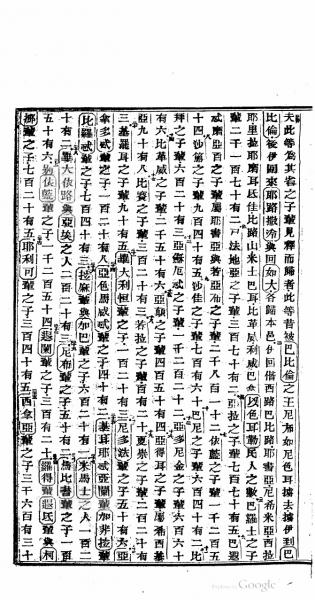 夫此等為其省之子輩見釋而歸者此等昔被巴比倫之王尼布加尼色耳擄去攜到巴
比倫後伊回來耶路撒冷與回如大各歸本邑伊回偕西路巴比路耶書亞尼希米亞西拉
耶里拉耶摩耳代比路山米士巴耳比革威利威巴拿以色耳勒民人之數巴羅士之子
輩二千一百七十有二司法地亞之子輩三百有七十二亞拉之子輩七百七十有五巴遐
威南亞百之子輩屬耶書亞與若亞布之子輩二千八百一十二依藍之子輩一千二百五
十四沙第之子輩九百四十有五沙佳之子輩七百有六十巴尼之子輩六百四十有二比
拜之子輩六百二十有三亞蘇厄忒之子輩一千二百二十二亞多尼金之子輩六百六十
有六比革威之子輩二千五十有六亞顛之子輩四百五十有四亞得耳之子輩屬希西基
亞九十有八比賽之子輩三百二十有三若拉之子輩百有十二夏崇之子輩二百二十有
三基羅耳之子輩九十有五畢大利恒之子輩一百二十有三尼多法輩之子五十有六亞
拿多忒輩之子一百二十有八亞色馬威忒輩之子四十有二基耳耶忒亞蘭輩加非拉輩
比羅忒輩之子七百四十有三拉麻輩與加巴輩之子六百二十有一米馬士之人一百二
十有二畢大依路與亞矣之人二百二十有三尼布輩之子五十有二馬比書輩之子一百
五十有六別依藍輩之子一千二百五十四遐闌輩之子三百有二十羅得輩遐氏輩與柯
挪輩之子七百二十有五耶利可輩之子三百四十有五西拿亞輩之子三千六百有三十
Google